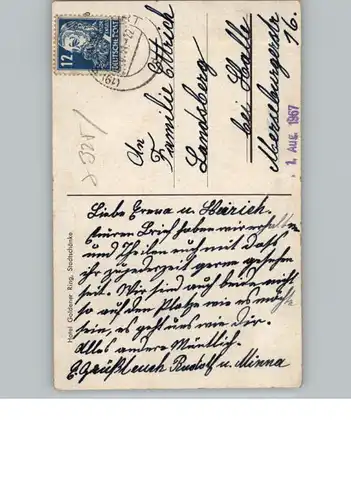 12
DEUTSCHE POST
An
Familie Ettrich
Landsberg
bei Halle
Merseburgerstr
16.
1. AUG. 1967
Hotel Goldener Ring, Stadtschänke
Liebe Erena u. Heinrich.
Euren Brief haben wir erhalten
und Theilen euch mit dass
ihr zujederzeit gerne gesehen
seit. Wir sind auch beide nicht
so auf den Platze wie es möchte
sein, es geht uns wie dir.
Alles andere Müntlich.
E Grüßt euch Rudolf u. Minna